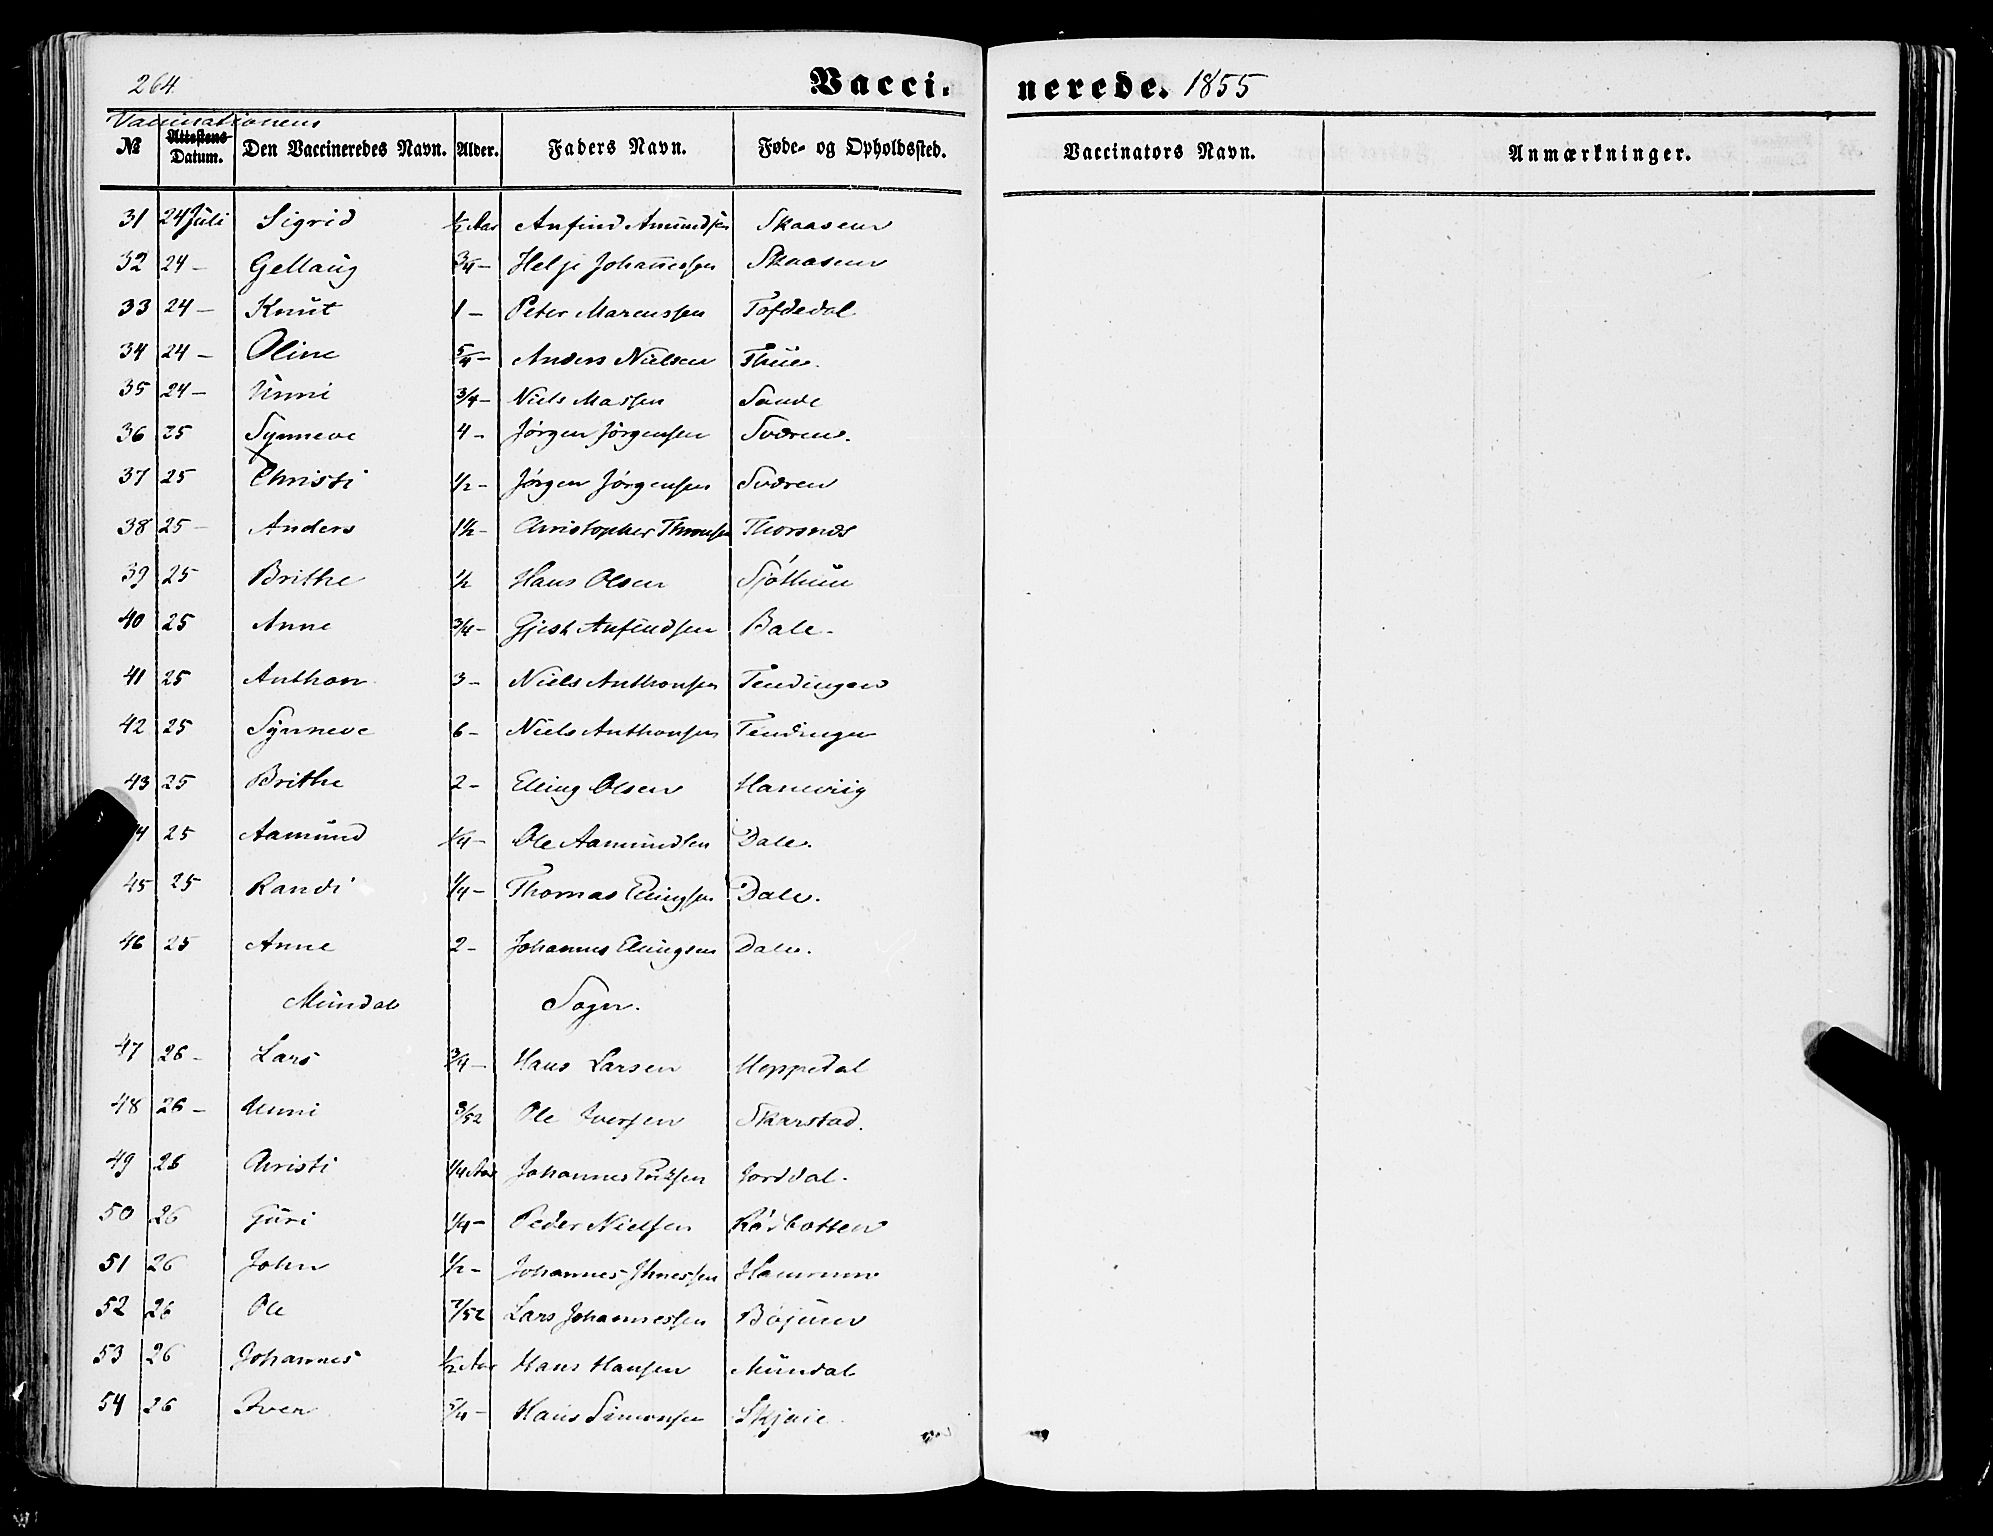 264
Vaccinerede. 1855
Vaccinationens
№ Attestens Datum. Den Vaccineredes Navn. Alder. Faders Navn. Føde- og Opholdssted. Vaccinators Navn. Anmærkninger.
31 24 Juli Sigrid ½ Aar Anfind Amundsen Skaasen
32 24 – Gellaug ¾ – Helje Johannessen Skaasen
33 24 – Knut 1 – Peter Marcussen Tofdedal
34 24 – Oline 5/4 – Anders Nielsen Thue.
35 24 – Unni 3/4 – Niels Massen Sande
36 25 Synneve 4 – Jørgen Jørgensen Sværen.
37 25 Christi 1/2 – Jørgen Jørgensen Sværen
38 25 – Anders 1½ – Christopher Thronsen Thorsnæs
39 25 Brithe ½ Hans Olsen Sjøthun
40 25 Anne 3/4 – Gjest Anfindsen Bale.
41 25 Anthon 3 – Niels Anthonsen Tendingen
42 25 Synneve 6 – Niels Anthonsen Tendingen
43 25 Brithe 2 – Elling Olsen
4 25 Aamund 1/4 – Ole Aamundsen Dale.
45 25 Randi 1/4 – Thomas Ellingsen Dale.
46 25 Anne 2 – Johannes Ellingsen Dale.
Mundal Sogn.
47 26 – Lars 3/4 – Hans Larsen Heppedal
48 26 – Unni 3/52 Ole Iversen Skarstad.
49 26 Christi 1/4 Aar Johannes Jorddal.
50 26 Guri 1/4 – Peder Nielsen Rødbotten
51 26 John 1/2 – Johannes Hamrum
52 26 Ole 7/52 Lars Johannessen Bøjum
53 26 Johannes ½ Aar Hans Hansen Mundal
54 26 Iver 5/4 – Hans Simonsen